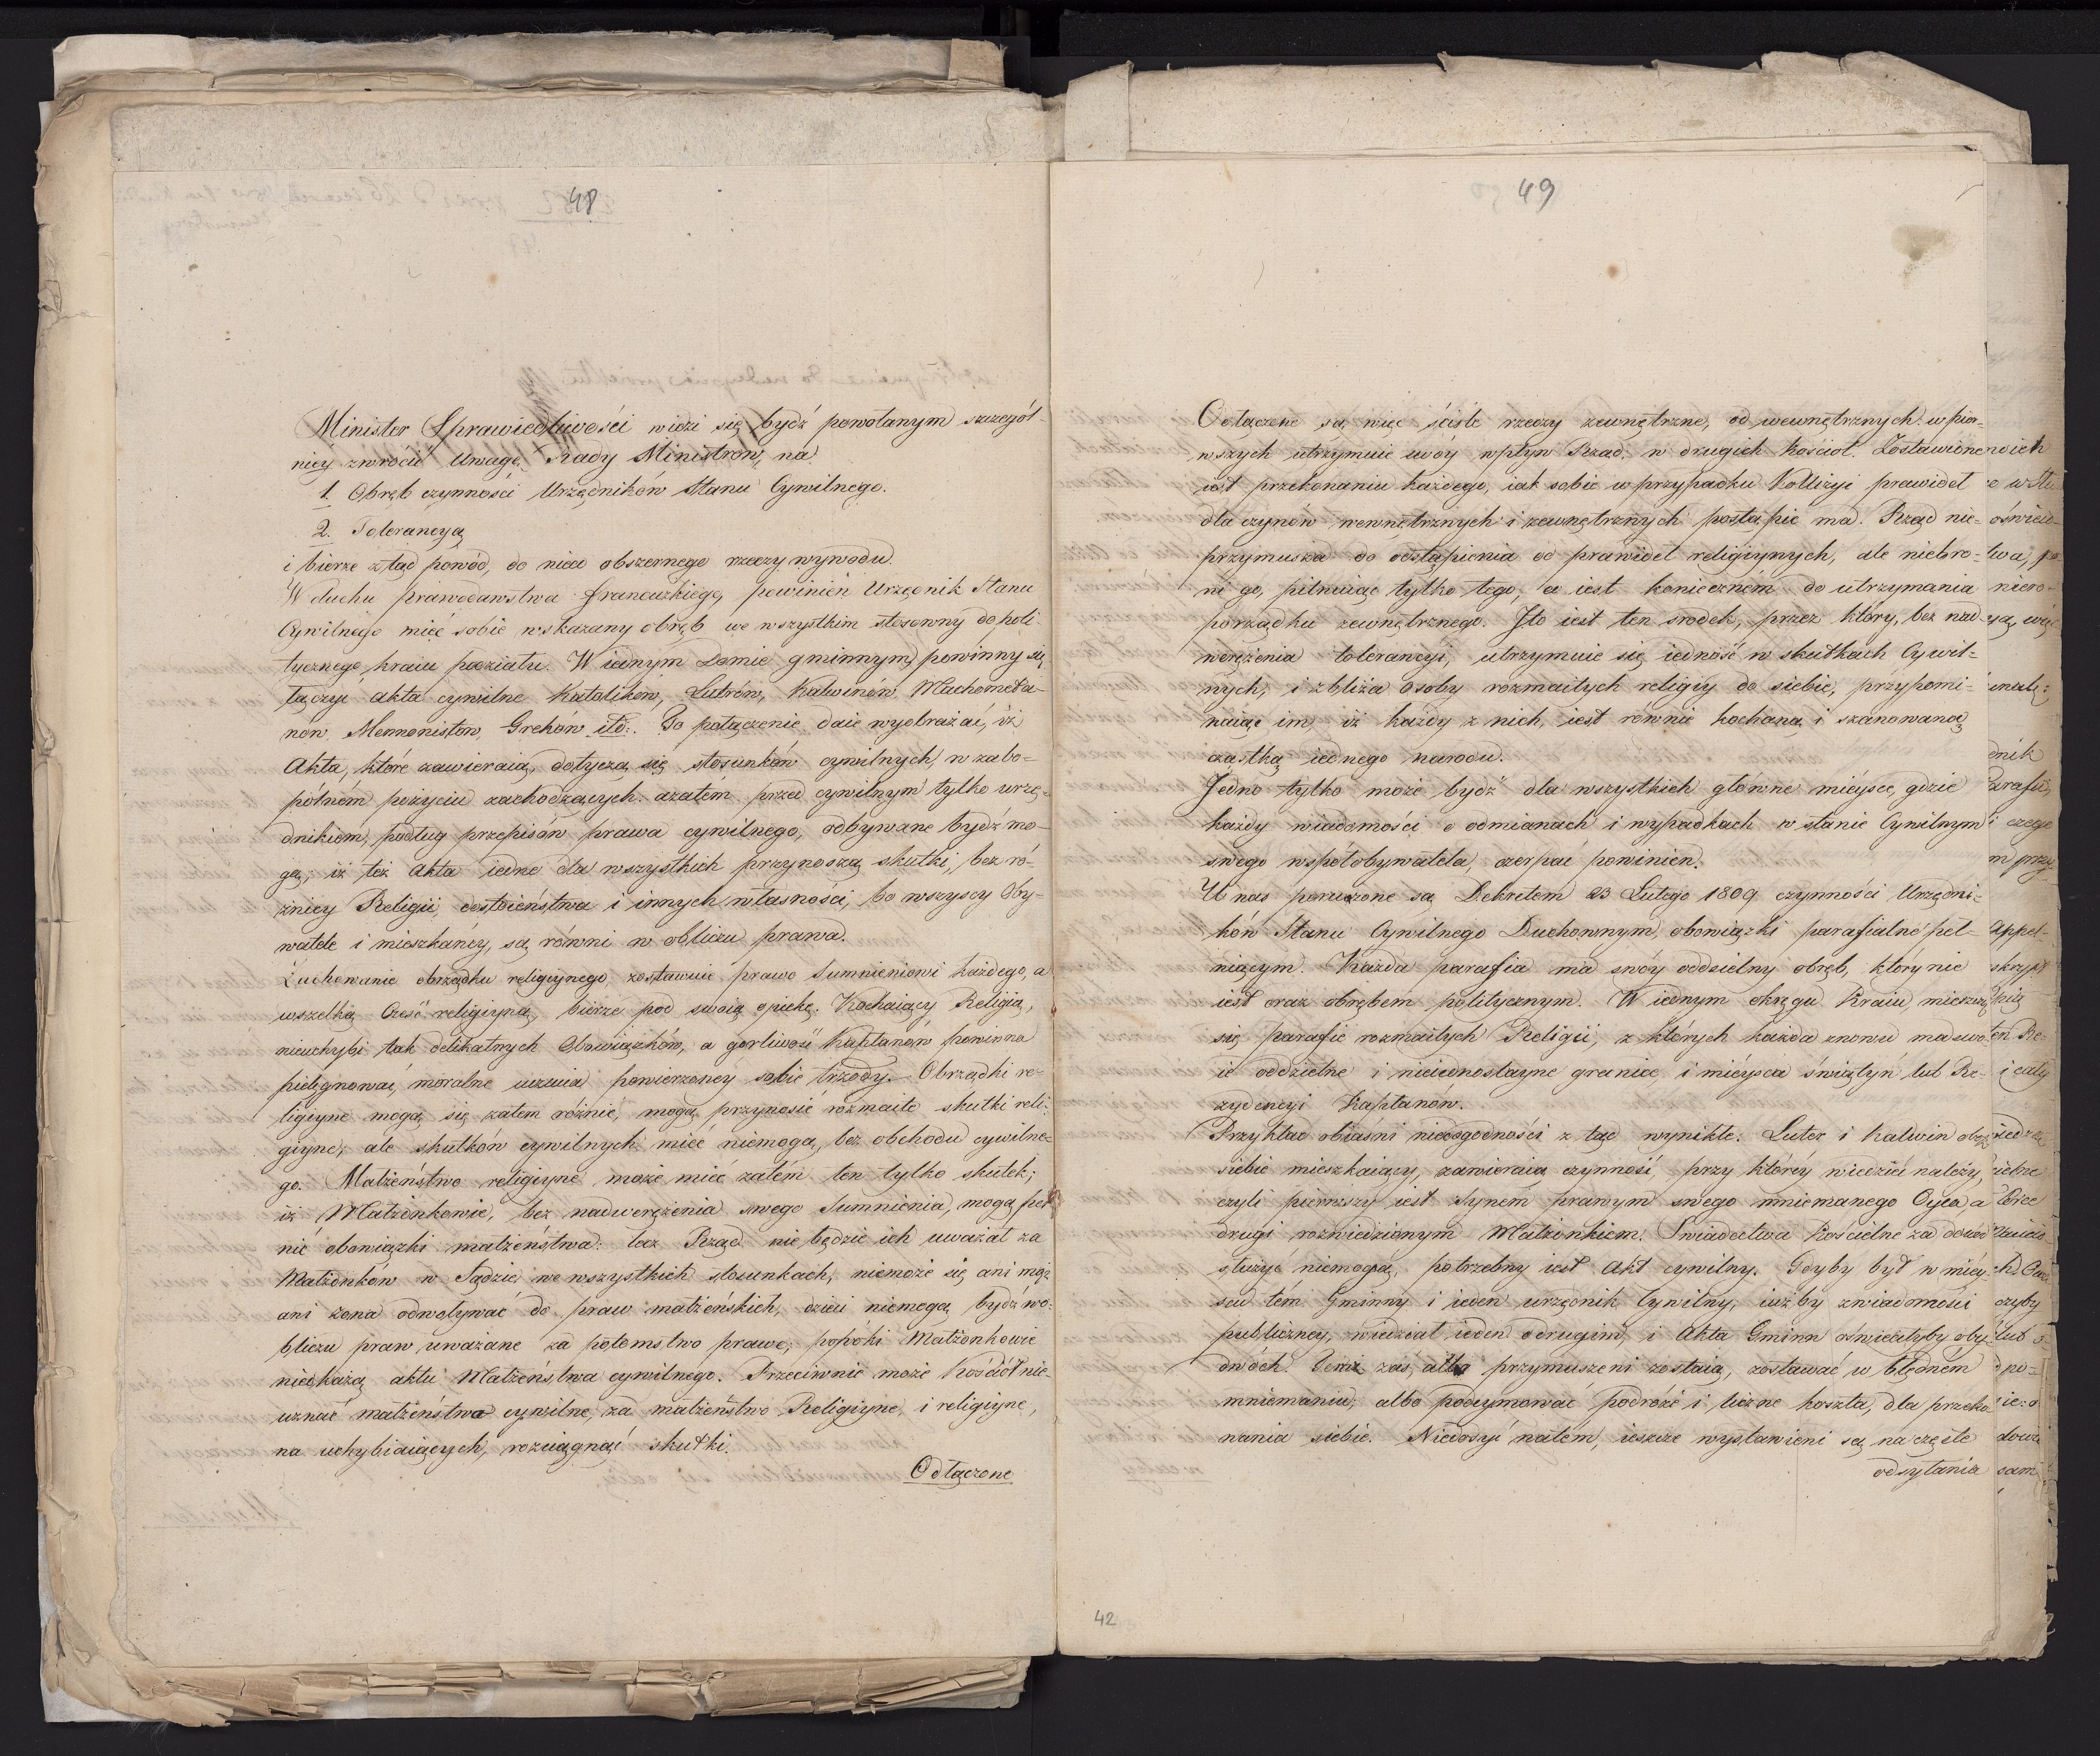 48
Minister Sprawiedliwości widzi się bydź powołanym szczegól-
niéy zwrócić Uwagę Rady Ministrów, na
1. Obręb czynności Urzędników Stanu Cywilnego.
2. Tolerancyą
i bierze ztąd powód, do nieco obszernego rzeczy wywodu.
W duchu prawodawstwa francuzkiego, powinien Urzędnik Stanu
Cywilnego mieć sobie wskazany obręb we wszystkim stosowny do poli-
tycznego kraiu podziału. W iednym Domie gminnym powinny się
łączyć akta cywilne Katolików, Lutrów, Kalwinów, Machometa-
nów, Mennonistów, Greków itd. To połączenie daie wyobrażać, iż
Akta, które zawieraią, dotyczą się stosunków cywilnych, w zobo-
pólném pożyciu zachodzących. azatém przed cywilnym tylko urzę-
dnikiem, podług przepisów prawa cywilnego, odbywane bydź mo-
gą; iż też akta iedne dla wszystkich przynoszą skutki, bez ró-
żnicy Religii, dostoieństwa i innych własności, bo wszyscy Oby-
watele i mieszkańcy, są równi w obliczu prawa.
Zachowanie obrządku religiynego zostawuie prawo Sumnieniowi każdego, a
wszelką Cześć religiyną, bierze pod swoią opiekę. Kochaiący Religią,
nieuchybi tak delikatnych Obowiązków, a gorliwość Kapłanów powinna
pielęgnować, moralne uczucia powierzoney sobie trzody. Obrządki re-
ligiyne mogą się zatem różnić, mogą przynosić rozmaite skutki reli-
giyne, ale skutków cywilnych mieć niemogą, bez obchodu cywilne-
go. Małżeństwo religiyne może mieć zatém ten tylko skutek;
iż Małżonkowie, bez nadwerężenia swego Sumnienia, mogą peł-
nić obowiązki małżeństwa: lecz Rząd nie będzie ich uważał za
Małżonków w Sądzie, we wszystkich stosunkach, niemoże się ani mąż
ani żona odwoływać do praw małżeńskich, dzieci niemogą bydź wo-
bliczu praw uważane za potomstwo prawe, popóki Małżonkowie
nieokażą aktu Małżeństwa cywilnego. Przeciwnie może Kościół nie-
uznać małżeństwa cywilne, za małżeństwo Religiyne, i religiyne,
na uchybiaiących, rozciągnąć skutki.
Odłączone
49
Odłączone są więc ściśle rzeczy zewnętrzne, od wewnętrznych: w pier-
wszych utrzymuie swóy wpływ Rząd; w drugich Kościoł. Zostawiono
iest przekonaniu każdego, iak sobie w przypadku Kollizyi prawideł
dla czynów wewnętrznych i zewnętrznych postąpić ma. Rząd nie-
przymusza do odstąpienia od prawideł religiynych, ale niebro-
ni go, pilnuiąc tylko tego, co iest konieczném do utrzymania
porządku zewnętrznego. Jto iest ten srodek, przez który, bez nad-
werężenia tolerancyi, utrzymuie się iedność w skutkach Cywil-
nych, i zbliża osoby rozmaitych religiy do siebie, przypomi-
naiąc im, iż każdy z nich, iest równie kochaną i szanowaną
cząstką iednego narodu.
Jedno tylko może bydź dla wszystkich główne mieysce, gdzie
każdy wiadomości o odmianach i wypadkach w stanie Cywilnym
swego współobywatela, czerpać powinien.
U nas poruczone są Dekretem 23 Lutego 1809 czynności Urzędni-
ków Stanu Cywilnego Duchownym, obowiązki parafialne peł-
niącym. Każda parafia ma swóy oddzielny obręb, ktory nie
iest oraz obrębem politycznym. W iednym okręgu Kraiu, mieszczą
się parafie rozmaitych Religii, z których każda znowu ma swo-
ie oddzielne i nieiednostayne granice, i mieysca świątyń lub Re-
zydencyi Kapłanów.
Przykład obiaśni niedogodności z tąd wynikłe. Luter i Kalwin obok
siebie mieszkaiący, zawieraią czynność, przy któréy wiedzieć należy,
czyli pierwszy iest Synem prawym swego mniemanego Oyca, a
drugi rozwiedzionym Małżonkiem. Swiadectwa Kościelne za dowód
służyć niemogą, potrzebny iest Akt cywilny. Gdyby był w miey-
scu tém Gminny i ieden urzędnik Cywilny, iużby zwiadomości
publiczney, wiedział ieden o drugim, i Akta Gminn oświeciłyby oby-
dwóch. Teraz zaś, albo przymuszeni zostaią, zostawać w błędném
mniemaniu, albo podeymować podróże i liczne koszta, dla przeko-
nania siebie. Niedosyć natém, ieszcze wystawieni są na częste
odsyłania
42